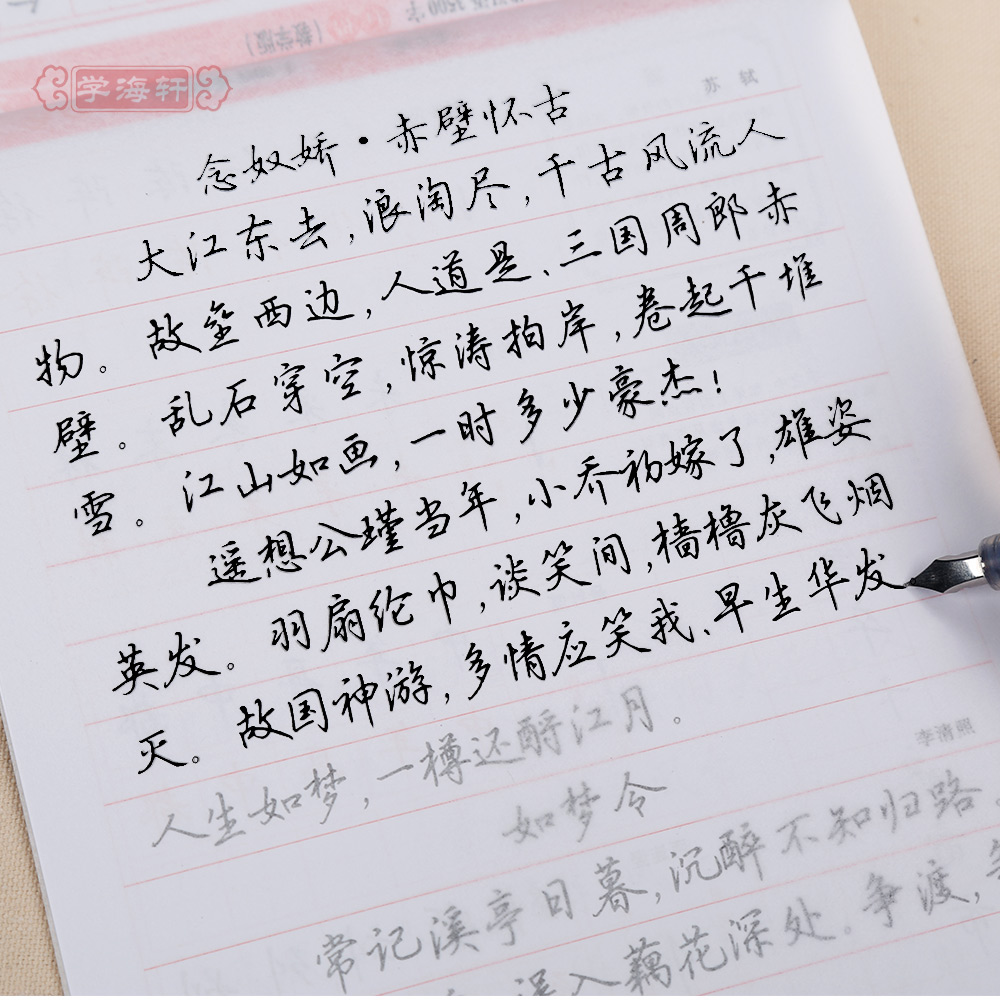 3500字
(教学版)
学海轩
苏轼
念奴娇·赤壁怀古
大江东去,浪淘尽,千古风流人
物。故垒西边,人道是、三国周郎赤
壁。乱石穿空,惊涛拍岸,卷起千堆
雪。江山如画,一时多少豪杰!
遥想公瑾当年,小乔初嫁了,雄姿
英发。羽扇纶巾,谈笑间,樯橹灰飞烟
灭。故国神游,多情应笑我、早生华发
人生如梦,一樽还酹江月。
李清照
如梦令
常记溪亭日暮,沉醉不知归路
误入藕花深处。争渡,